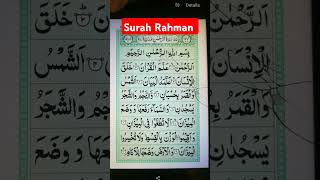 Details
Surah Rahman
بِسْمِ اللهِ الرَّحْمٰنِ الرَّحِيْمِ
اَلرَّحْمٰنُ ۙ عَلَّمَ الْقُرْاٰنَ ؕ خَلَقَ
الْاِنْسَانَ ۙ عَلَّمَهُ الْبَيَانَ اَلشَّمْسُ
وَالْقَمَرُ بِحُسْبَانٍ ۙ وَّالنَّجْمُ وَالشَّجَرُ
يَسْجُدٰنِ وَالسَّمَآءَ رَفَعَهَا وَوَضَعَ
الْمِيْزَانَ ۙ اَلَّا تَطْغَوْا فِي الْمِيْزَانِ
وَاَقِيْمُوا الْوَزْنَ بِالْقِسْطِ وَلَا تُخْسِرُوا
الْمِيْزَانَ وَالْاَرْضَ وَضَعَهَا لِلْاَنَامِ ۙ